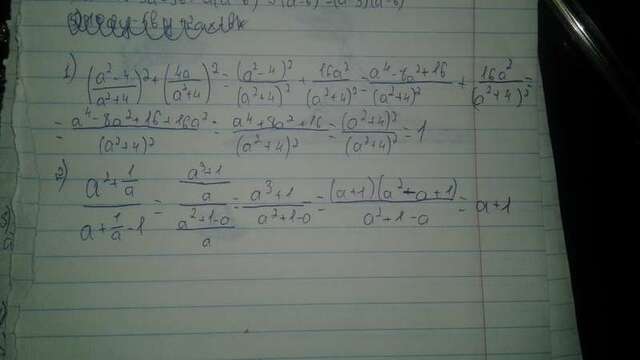 1) ((a²-4)/(a²+4))² + (4a/(a²+4))² = (a²-4)²/(a²+4)² + 16a²/(a²+4)² = (a⁴-8a²+16)/(a²+4)² + 16a²/(a²+4)² =
= (a⁴-8a²+16+16a²)/(a²+4)² = (a⁴+8a²+16)/(a²+4)² = (a²+4)²/(a²+4)² = 1
2) (a²+1/a)/(a+1/a-1) = ((a³+1)/a)/((a²+1-a)/a) = (a³+1)/(a²+1-a) = (a+1)(a²-a+1)/(a²+1-a) = a+1